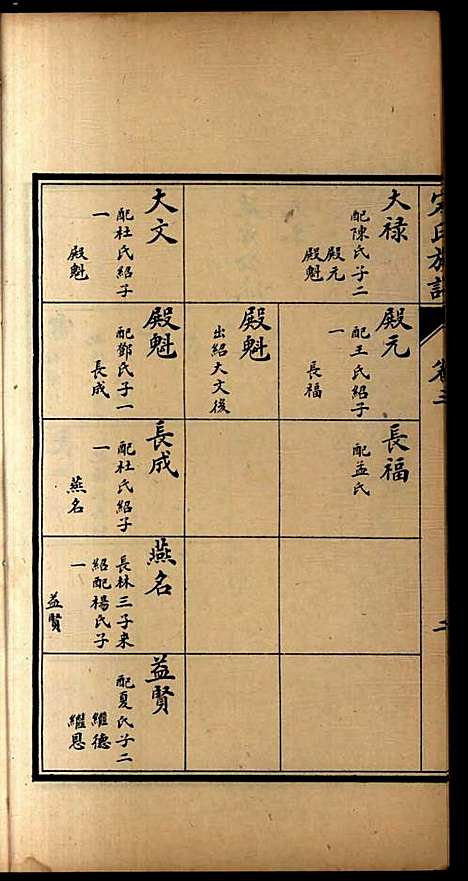 氏族譜
卷三
二
大禄
配陳氏子二
殿元
殿魁
殿元
配王氏紹子
一
長福
長福
配孟氏
殿魁
出紹大文後
大文
配杜氏紹子
一
殿魁
殿魁
配鄧氏子一
長成
長成
配杜氏紹子
一
燕名
燕名
長林三子來
紹配楊氏子
一
益賢
益賢
配夏氏子二
維德
繼恩